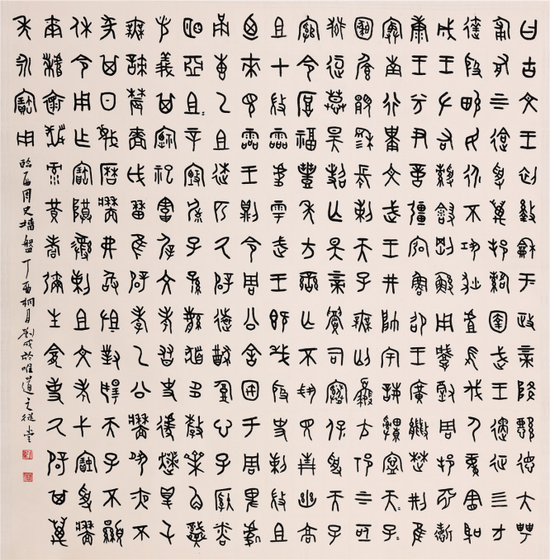 曰古文王初盭龢于政上帝降懿德大甹
匍有上下迨受萬邦𩁹圉武王遹征四方
達殷畯民永不巩狄虘𢼸伐尸童憲聖
成王左右綬剛鯀用肇徹周邦淵哲
康王兮尹億疆宏魯昭王廣能楚荊隹
寏南行祗顯穆王井帥宇誨緟寧天子
圝饡文武長剌天子無匄祁上下亟
獄逗慕昊照亡昊上帝司夒尢保受天子
綰令厚福豐年方蠻亡不見青幽高
且才微靈處雩武王既𢦏殷微史剌且
乃來見武王武王則令周公舍宇于周卑處
甬叀乙且逨匹厥辟遠猷腹心子納粦
明亞且且辛毓子孫繁多孷齊角熾
光義其禋祀遲文考乙公遽爽得屯無
諫農嗇戉曆隹辟孝友史墻夙夜不
彖其日蔑曆墻弗敢沮對揚天子不顯
休令用乍寶尊彝剌且文考弋受墻
爾福褱彔黃耇彌生龕事厥辟其萬
年永寶用
臨西周史墻盤丁酉桐月劉成於惟道是從堂